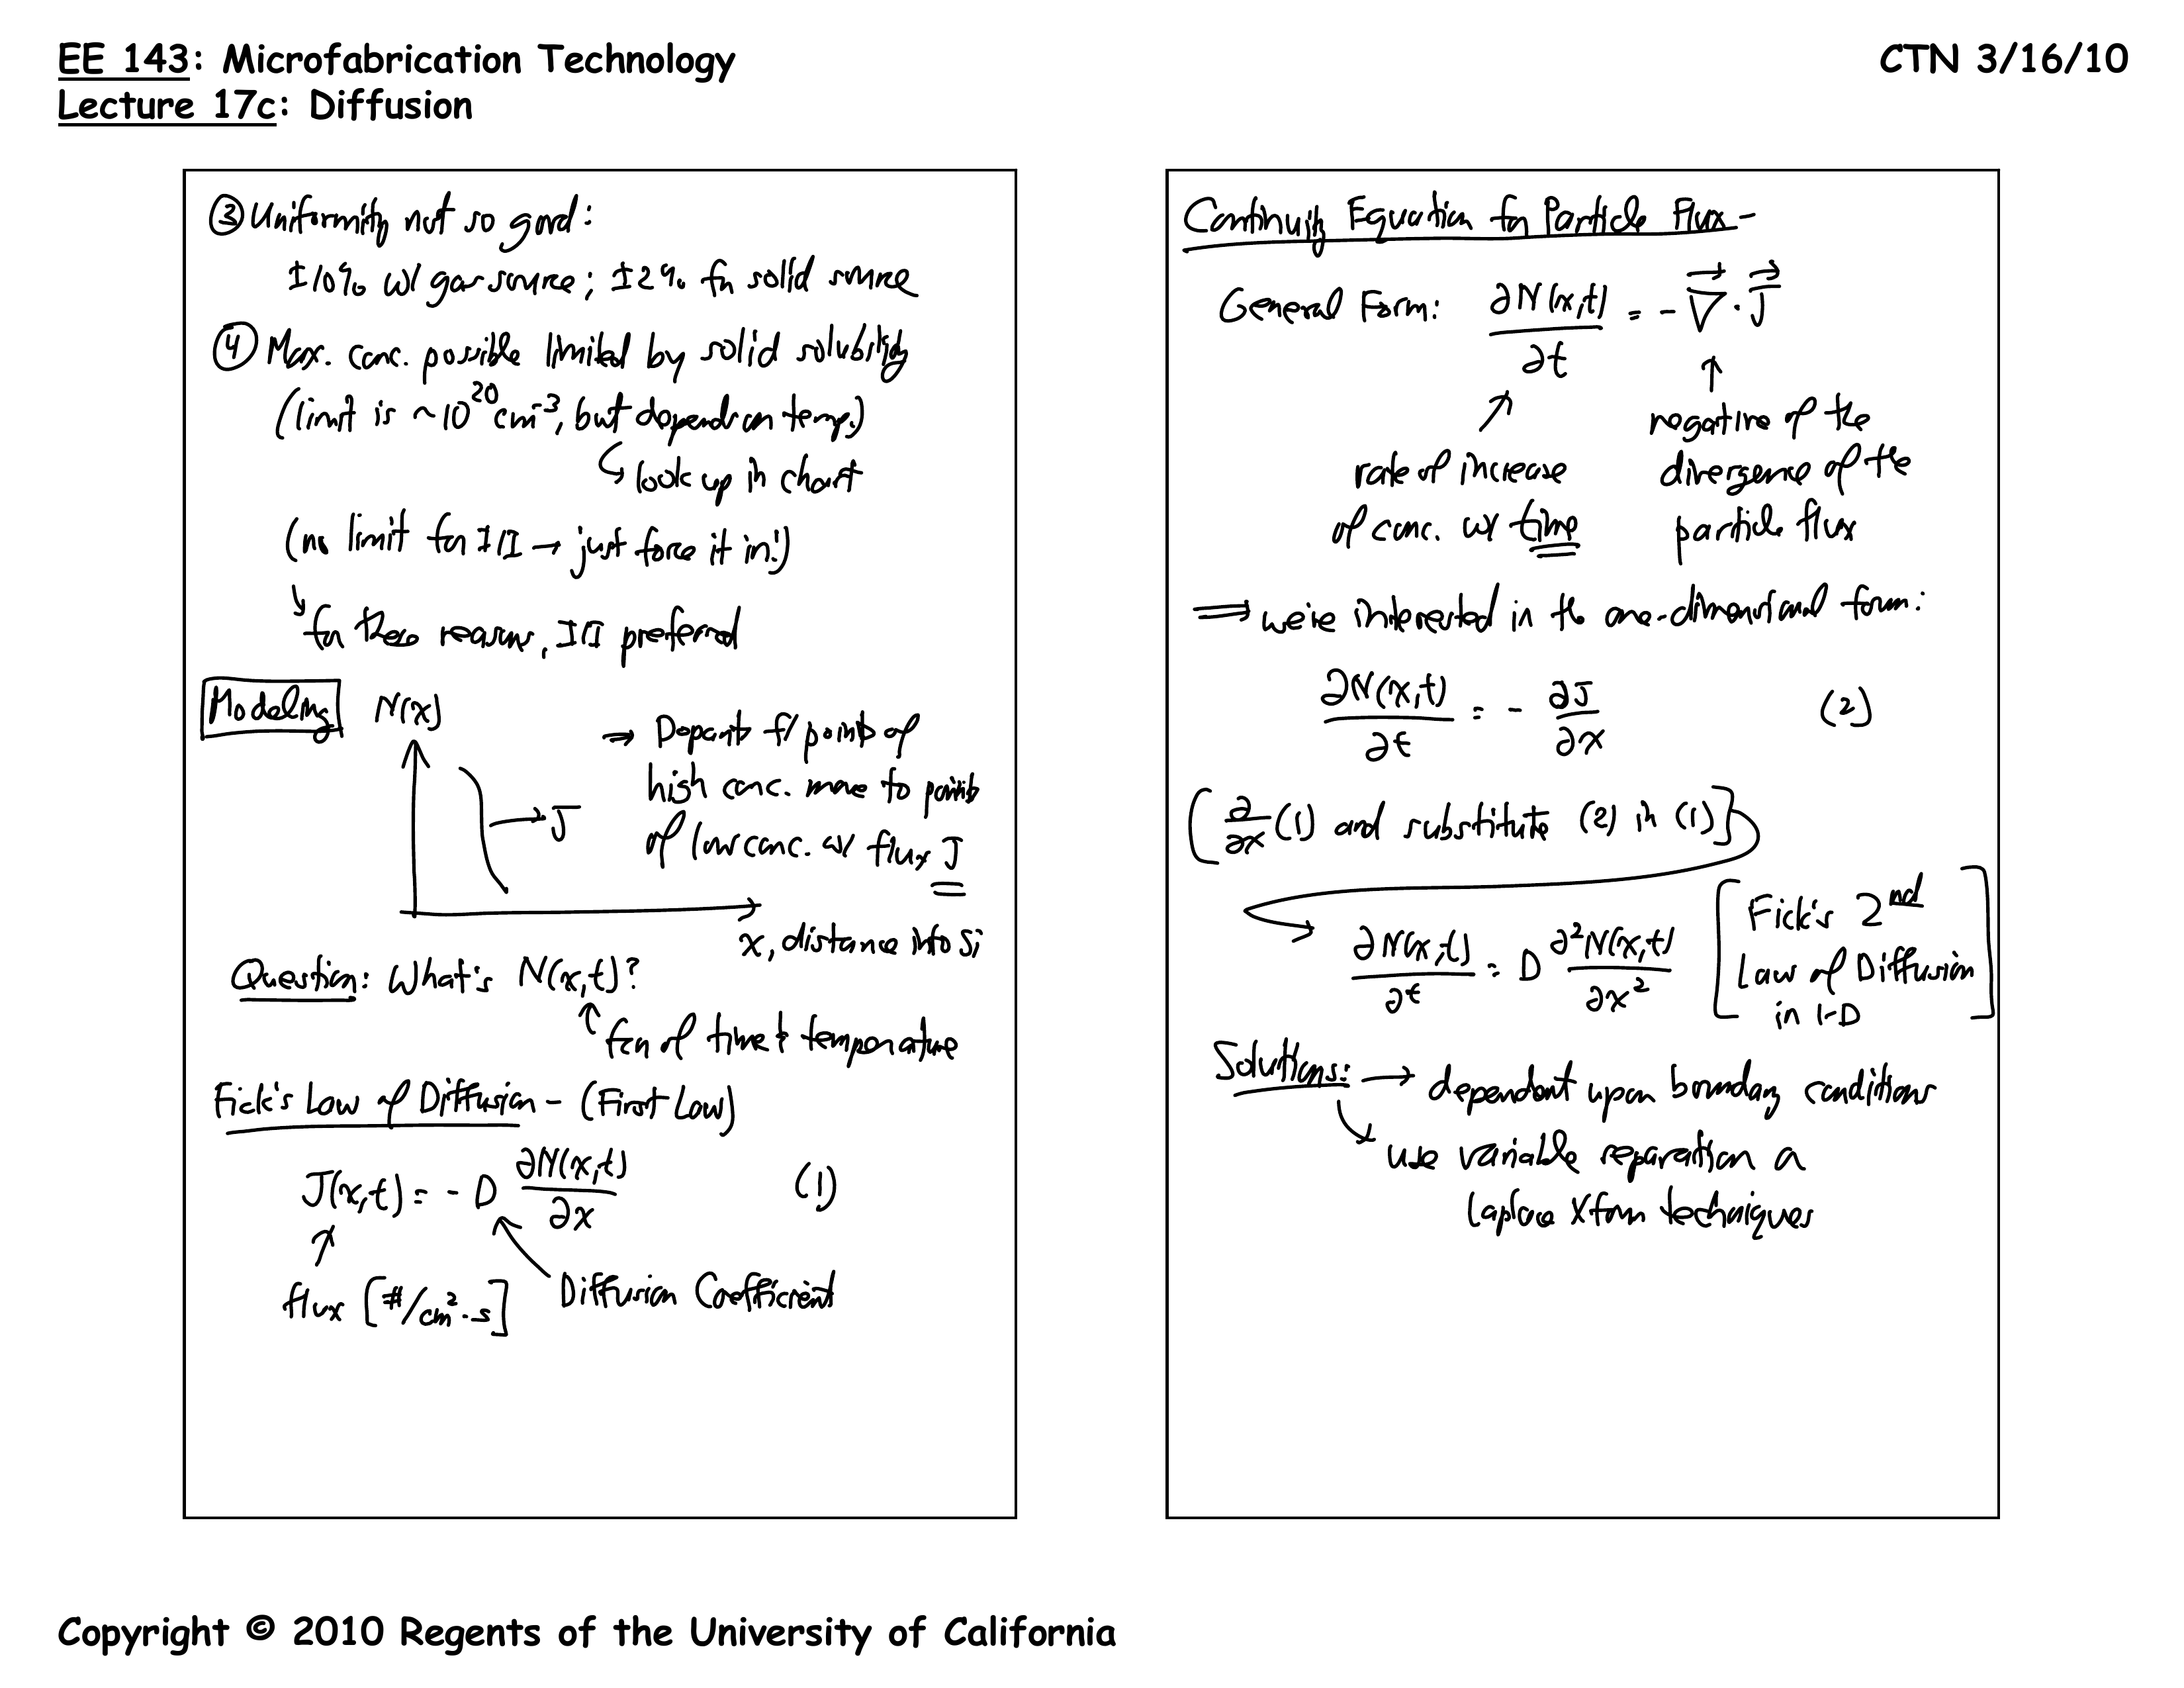 EE 143: Microfabrication Technology
Lecture 17c: Diffusion
CTN 3/16/10
③ Uniformity not so good:
±10% w/ gas source; ±2% for solid source
④ Max. conc. possible limited by solid solubility
(limit is ~10²⁰ cm⁻³, but depends on temp.)
look up in chart
(no limit for I/I → just force it in!)
for these reasons, I/I preferred
Modeling
N(x)
→ J
⇒ Dopants f/ points of
high conc. move to points
of low conc. w/ flux J
x, distance into Si
Question: What's N(x,t)?
fcn of time & temperature
Fick's Law of Diffusion - (First Law)
J(x,t) = - D ∂N(x,t)/∂x (1)
flux [#/cm²-s]
Diffusion Coefficient
Continuity Equation for Particle Flux -
General Form: ∂N(x,t)/∂t = - ∇⃗ · J⃗
rate of increase
of conc. w/ time
negative of the
divergence of the
particle flux
⇒ we're interested in the one-dimensional form:
∂N(x,t)/∂t = - ∂J/∂x (2)
[∂/∂x (1) and substitute (2) in (1)]
∂N(x,t)/∂t = D ∂²N(x,t)/∂x²
[Fick's 2nd
Law of Diffusion
in 1-D]
Solutions: → dependent upon boundary conditions
use variable separation or
Laplace Xform techniques
Copyright © 2010 Regents of the University of California